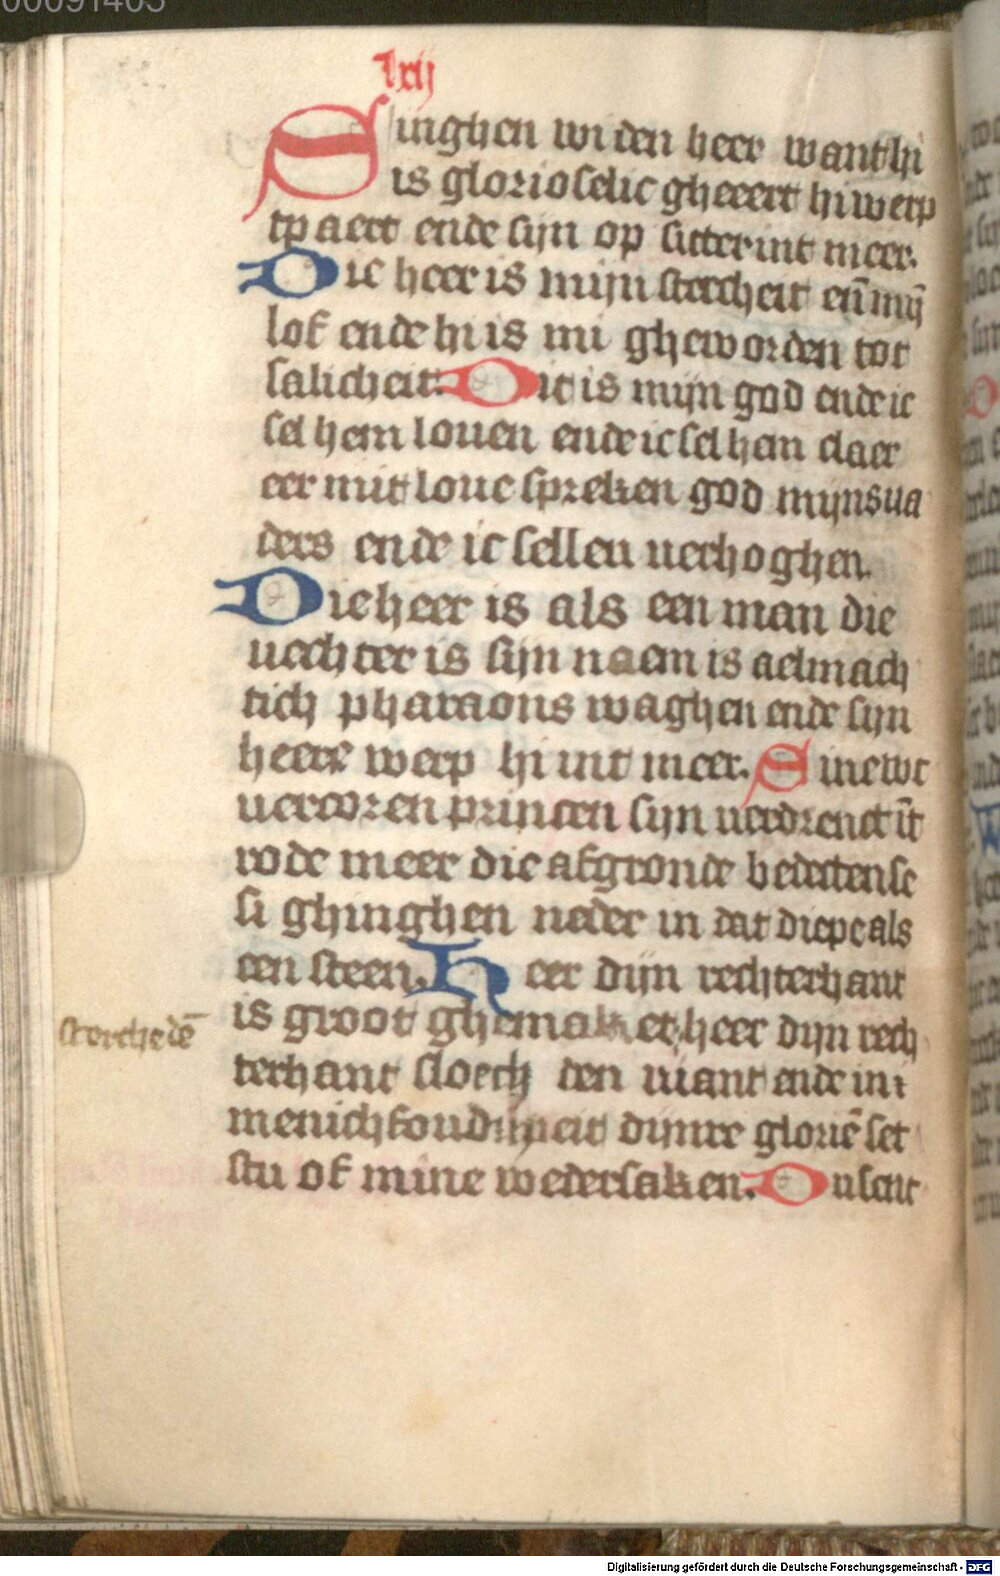 00091405
lxij
Singhen wi den heer want hi
is glorioselic gheeert hi werp
tpaert ende sijn op sitter int meer.
Die heer is mijn stercheit eñ mij̄
lof ende hi is mi gheworden tot
salicheit. Dit is mijn god ende ic
sel hem louen ende ic sel hem claer
eer mit loue spreken god mijns va
ders ende ic sellen verhoghen.
Die heer is als een man die
vechter is sijn naem is aelmach
tich pharaons waghen ende sijn
heere werp hi int meer. Sine wt
vercoren princen sijn verdrenct ī̄t
rode meer die afgronde bedectense
si ghinghen neder in dat diepe als
een steen. Heer dijn rechterhant
is groot ghemaket heer dijn rech
sterchedē
terhant sloech den viant ende in
menichfoudicheit dijnre gloriē set
stu of mine wedersaken. Du sent
Digitalisierung gefördert durch die Deutsche Forschungsgemeinschaft - DFG